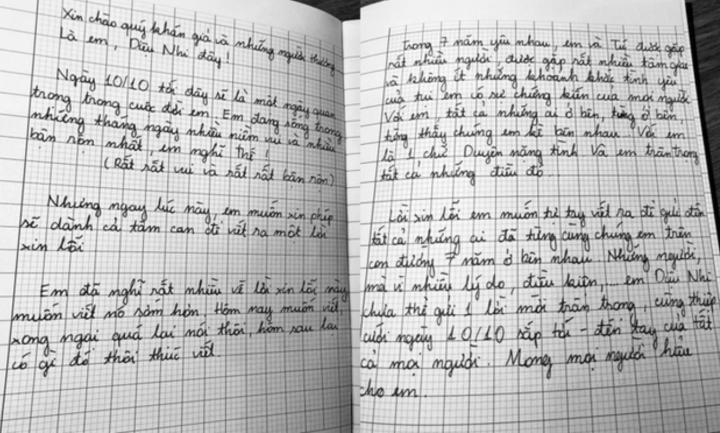 Xin chào quý khán giả và những người thương
Là em, Diệu Nhi đây!
Ngày 10/10 tới đây sẽ là một ngày quan
trọng trong cuộc đời em. Em đang sống trong
những tháng ngày nhiều niềm vui và nhiều
bận rộn nhất, em nghĩ thế!
(Rất rất vui và rất rất bận rộn)
Nhưng ngay lúc này, em muốn xin phép
sẽ dành cả tâm can để viết ra một lời
xin lỗi
Em đã nghĩ rất nhiều về lời xin lỗi này
muốn viết nó sớm hơn, Hôm nay muốn viết,
xong ngại quá lại nói thôi, hôm sau lại
có gì đó thôi thúc viết.
Trong 7 năm yêu nhau, em và Tú được gặp
rất nhiều người, được gặp rất nhiều tâm giao
và không ít những khoảnh khắc tình yêu
của tụi em có sự chứng kiến của mọi người
Với em, tất cả những ai ở bên, từng ở bên,
từng thấy chúng em kề bên nhau. Với em
là 1 chữ Duyên nặng tình và em trân trọng
tất cả những điều đó.
Lời xin lỗi em muốn tự tay viết ra để gửi đến
tất cả những ai đã từng cùng chúng em trên
con đường 7 năm ở bên nhau. Những người,
mà vì nhiều lý do, điều kiện,... em Diệu Nhi
chưa thể gửi 1 lời mời trân trọng, cùng thiệp
cưới ngày 10/10 sắp tới - đến tay của tất
cả mọi người. Mong mọi người hiểu
cho em.